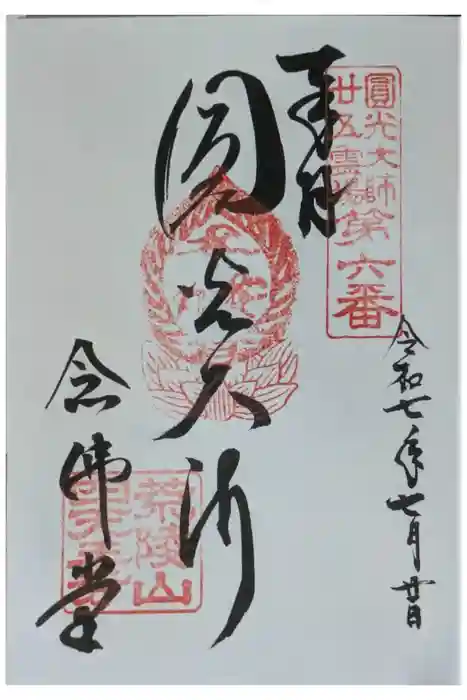 圓光大師
廿五霊場第六番
奉拝
令和七年七月廿日
圓光大師
念佛堂